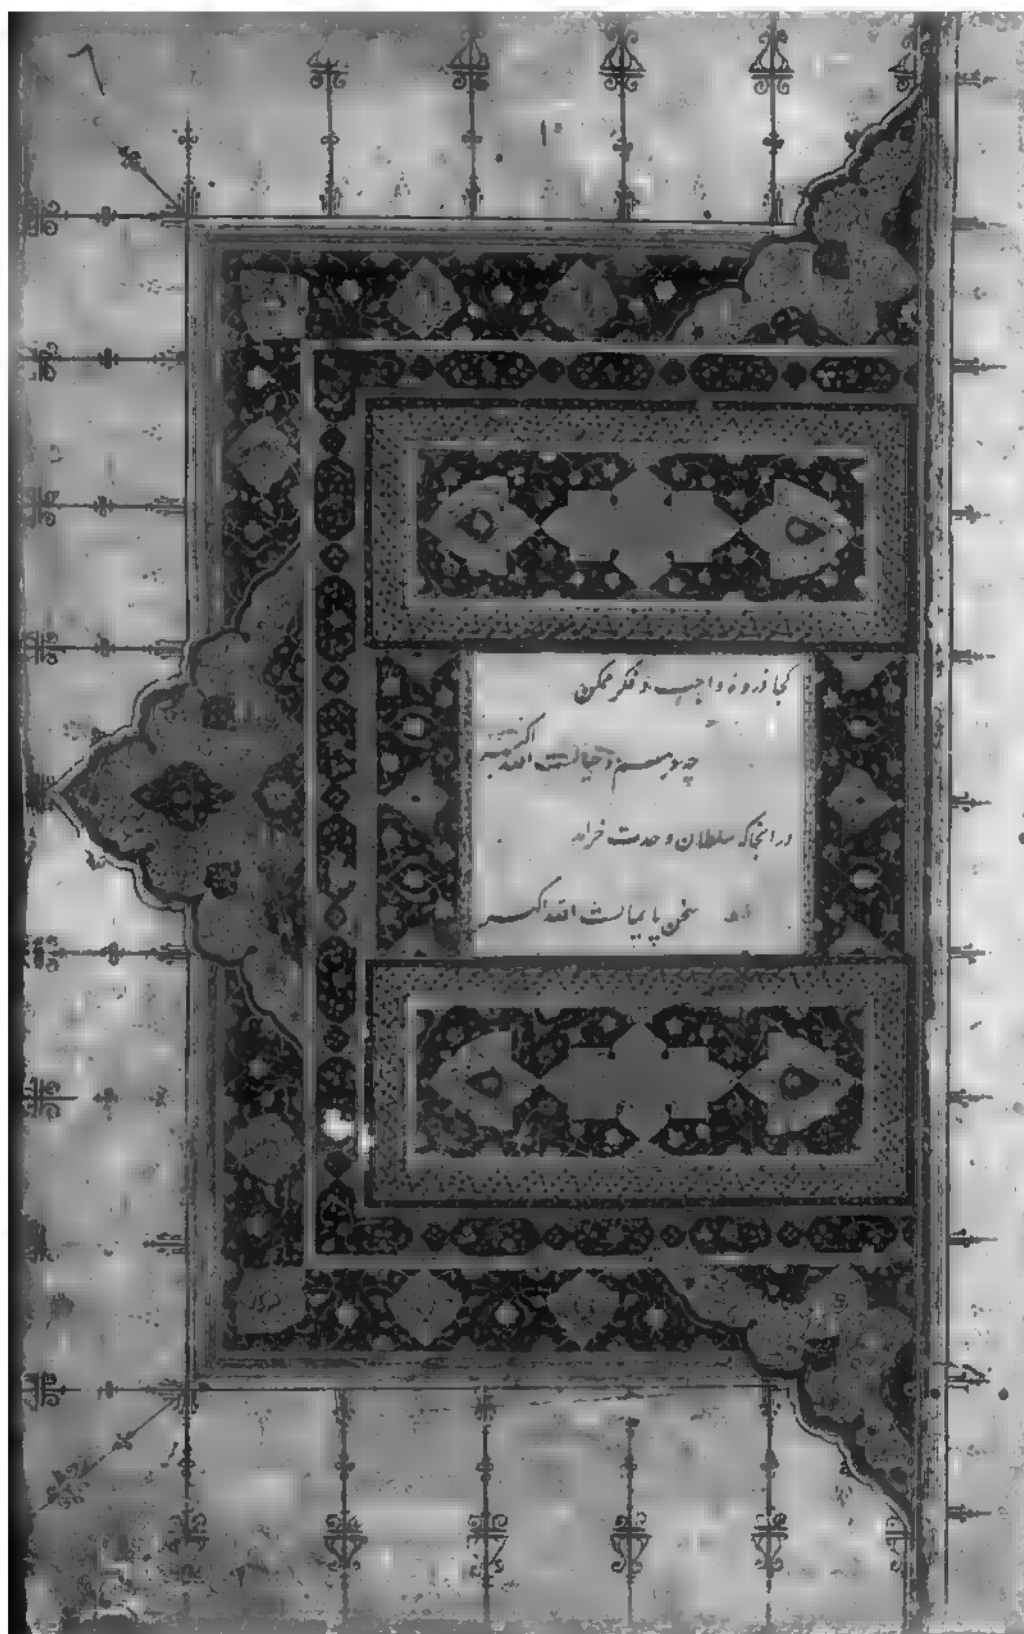 کجا ذروه واجب و فکر ممکن
چه وهم و خیالست الله اکبر
در انجا که سلطان وحدت خرامد
سخن پایمالست الله اکبر